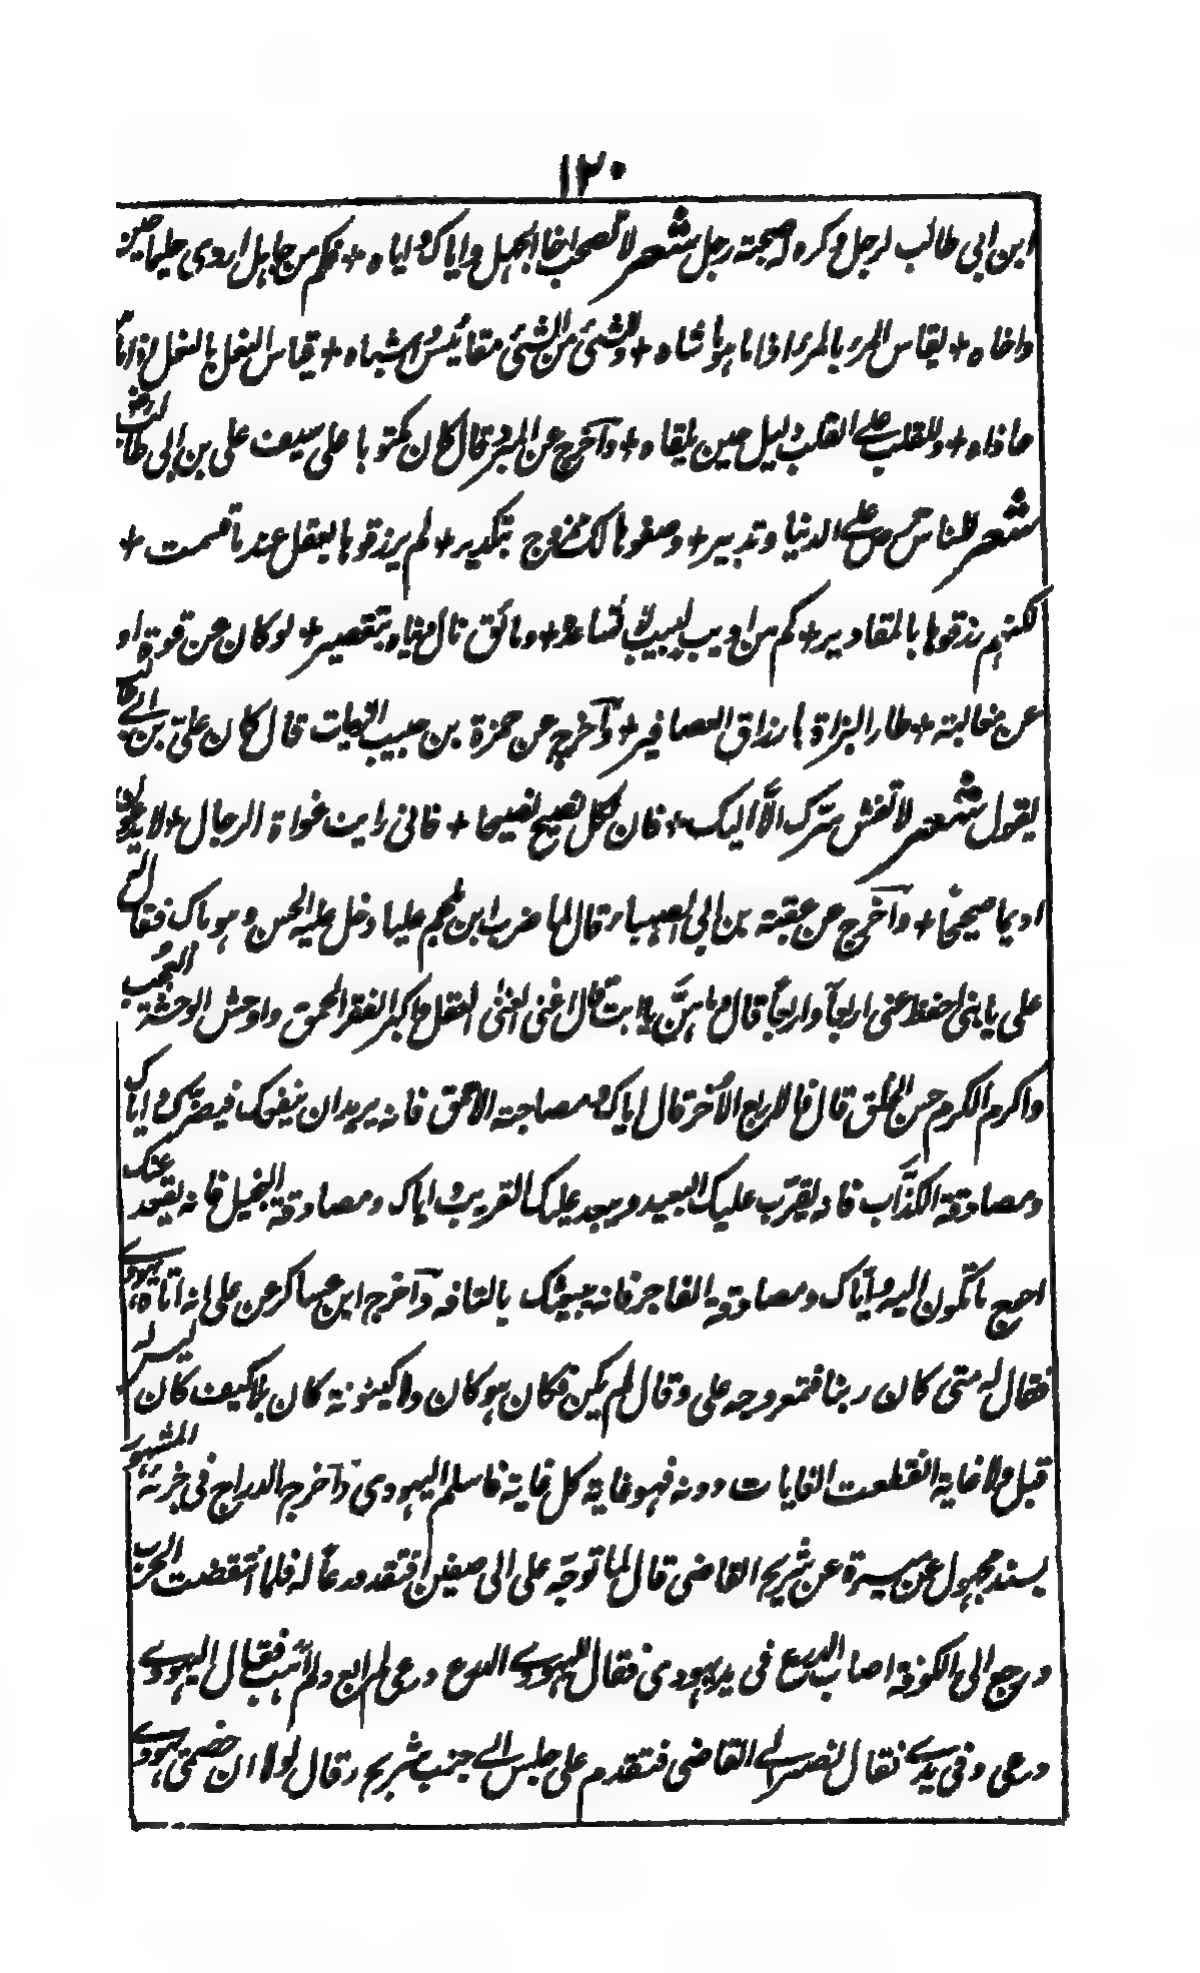 ١٢٠
ابن ابي طالب لرجل وكره له صحبته رجل شعر لا تصحب اخا الجهل واياك واياه + فكم من جاهل اردى حليما حين
واخاه + يقاس المرء بالمرء اذا ما هو ما شاه + وللشئ من الشئ مقائيس واشباه + قياس النعل بالنعل اذا ما
ماذاه + وللقلب على القلب دليل حين يلقاه + وآخرج عن المبرد قال كان مكتوبا على سيف علي بن ابي طالب
شعر للناس حرص على الدنيا وتدبير + وصفوها لك ممزوج بتكدير + لم يرزقوها بعقل عند ما قسمت +
لكنهم رزقوها بالمقادير + كم من اديب لبيب لا تساعده + ومائق نال دنياه بتقصير + لو كان عن قوة او
عن مغالبة + طار البزاة بارزاق العصافير + وآخرج عن حمزة بن حبيب الزيات قال كان علي بن ابي طالب
يقول شعر لا تفش سرك الا اليك + فان لكل نصيح نصيحا + فاني رايت غواة الرجال + لا يدعون
اديما صحيحا + وآخرج عن عقبة بن ابي الصهباء قال لما ضرب ابن ملجم عليا دخل عليه الحسن وهو باك فقال
علي يا بني احفظ عني اربعا واربعا قال وما هن يا ابت قال اغنى الغنى العقل واكبر الفقر الحمق واوحش الوحشة العجب
واكرم الكرم حسن الخلق قال فالاربع الآخر قال اياك ومصاحبة الاحمق فانه يريدان ينفعك فيضرك واياك
ومصادقة الكذاب فانه يقرب عليك البعيد ويبعد عليك القريب واياك ومصادقة البخيل فانه يقعد عنك
احوج ما تكون اليه واياك ومصادقة الفاجر فانه يبيعك بالتافه وآخرج ابن عساكر عن علي انه اتاه يهودي
فقال له متى كان ربنا فتمعر وجه علي وقال لم يكن فكان هو كان ولا كينونة كان بلا كيف كان ليس له
قبل ولا غاية انقطعت الغايات دونه فهو غاية كل غاية فاسلم اليهودي وآخرج الدراج في جزئه المشهور
بسند مجهول عن ميسرة عن شريح القاضي قال لما توجه علي الى صفين افتقد درعا له فلما انقضت الحرب
ورجع الى الكوفة اصاب الدرع في يد يهودي فقال لليهودي الدرع درعي لم ابع ولم اهب فقال اليهودي
درعي وفي يدي فقال نصير الى القاضي فتقدم علي جلس الى جنب شريح وقال لولا ان خصمي يهودي